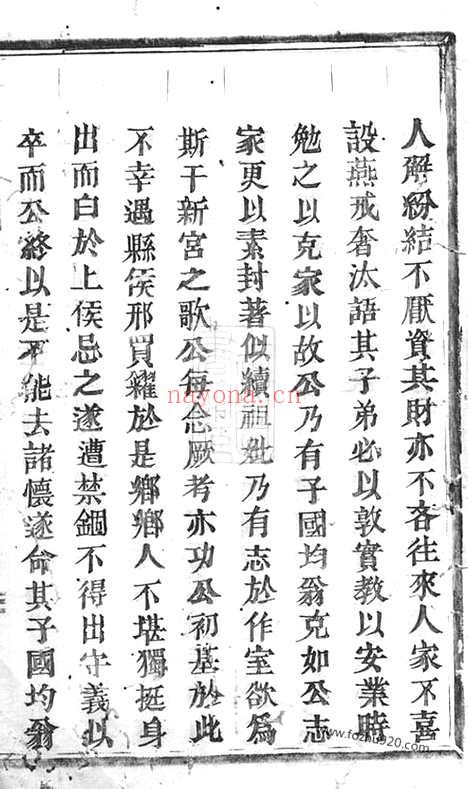 人解紛結不厭資其財亦不吝往來人家不喜
設燕戒奢汰語其子弟必以敦實教以安業時
勉之以克家以故公乃有子國均翁克如公志
家更以素封著似續祖妣乃有志於作室欲爲
斯干新宮之歌公每念厥考亦功公初基於此
不幸遇縣侯邢買糴於是鄉鄉人不堪獨挺身
出而白於上侯忌之遂遭禁錮不得出守義以
卒而公終以是不能去諸懷遂命其子國均翁
nayona.cn
www.fozhu920.com